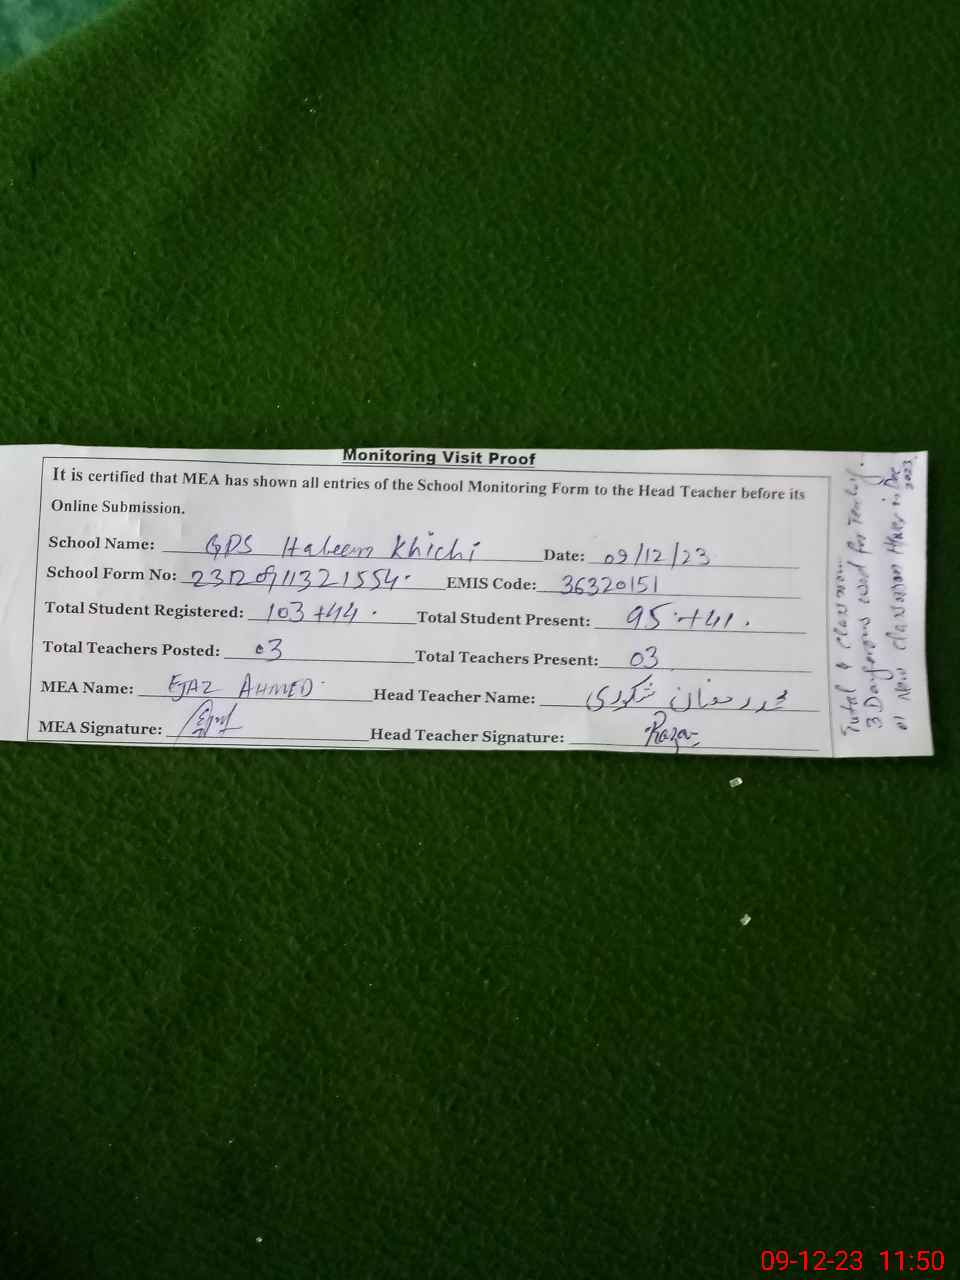 Monitoring Visit Proof
It is certified that MEA has shown all entries of the School Monitoring Form to the Head Teacher before its
Online Submission.
School Name: GPS Haleem Khichi Date: 09/12/23
School Form No: EMIS Code: 36320151
Total Student Registered: 103+44. Total Student Present: 95+41.
Total Teachers Posted: 03 Total Teachers Present: 03
MEA Name: EJAZ AHMED Head Teacher Name: شکوری
MEA Signature: Head Teacher Signature: Raza
Total Classroom
3 Dangerous used for
01 New Classroom in Dec
2023
09-12-23 11:50